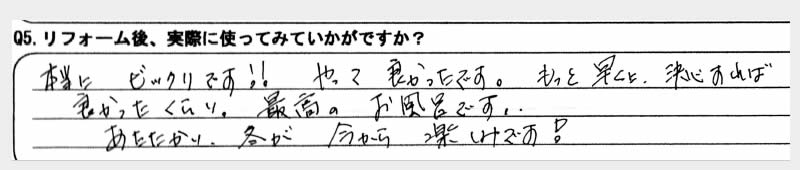 Q5. リフォーム後、実際に使ってみていかがですか？
本当に ビックリです!! やって 良かったです。もっと 早くに、決心すれば
良かったくらい。最高の お風呂です。
あたたかい、冬が 今から 楽しみです!